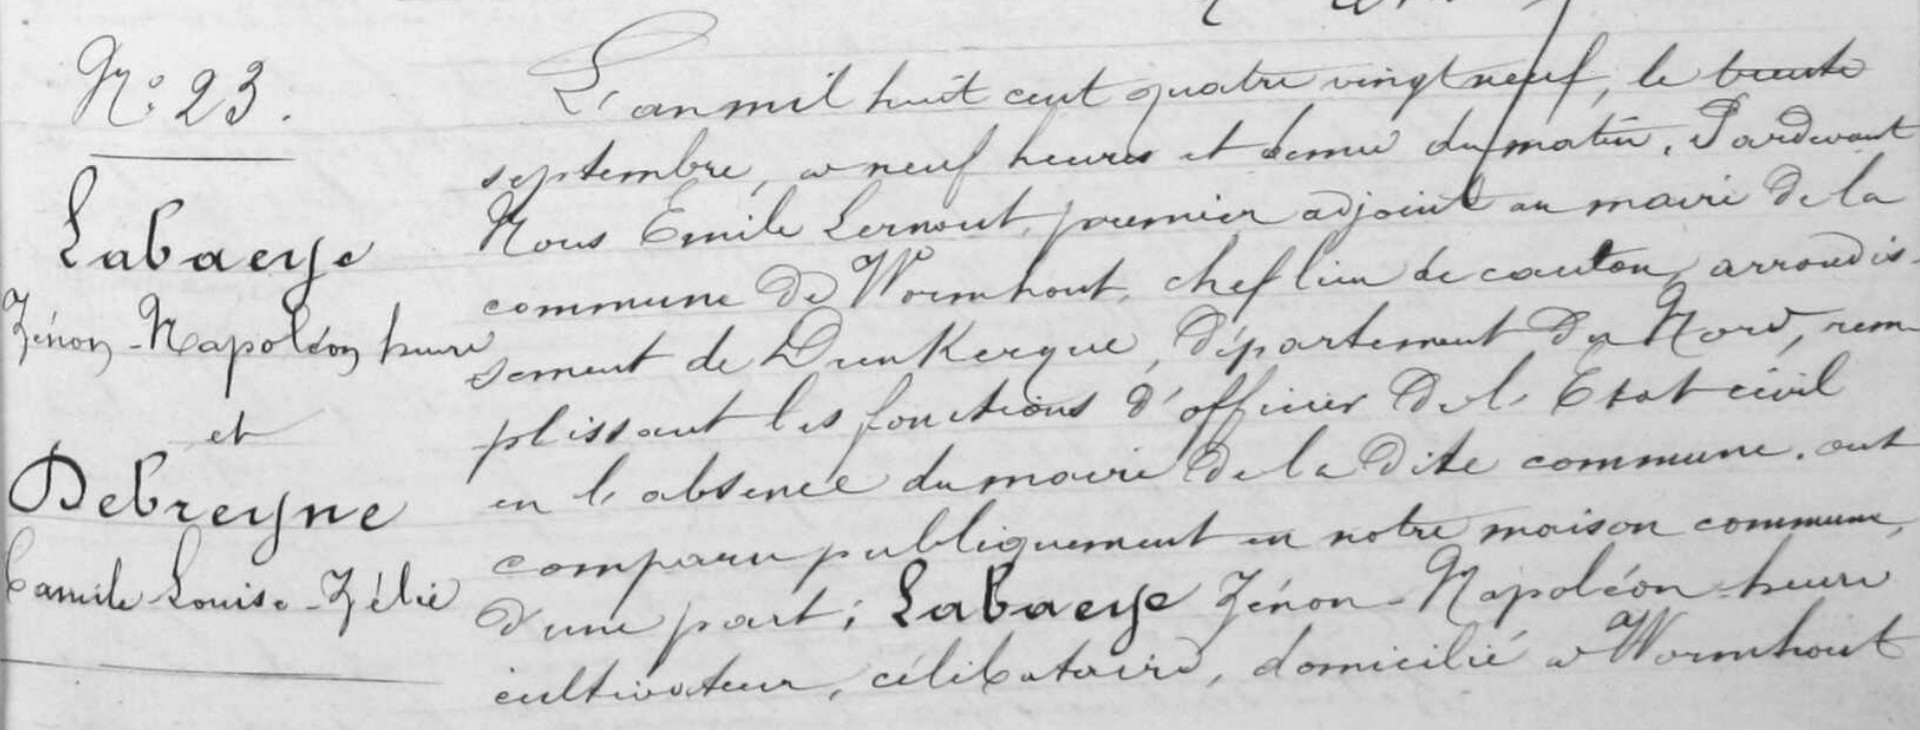 N° 23.
Labaeye
Zénon-Napoléon henri
et
Debreyne
Camile-Louise-Zélie
L'an mil huit cent quatre vingt neuf, le trente
septembre, a neuf heures et demie du matin. Pardevant
Nous Emile Lernout, premier adjoint au maire de la
commune de Wormhout, chef lieu de canton, arrondis-
sement de Dunkerque, département du Nord, rem-
plissant les fonctions d'officier de l'Etat civil
en l'absence du maire de la dite commune. ont
comparu publiquement en notre maison commune,
d'une part; Labaeye Zénon-Napoléon-henri
cultivateur, célibataire, domicilié a Wormhout